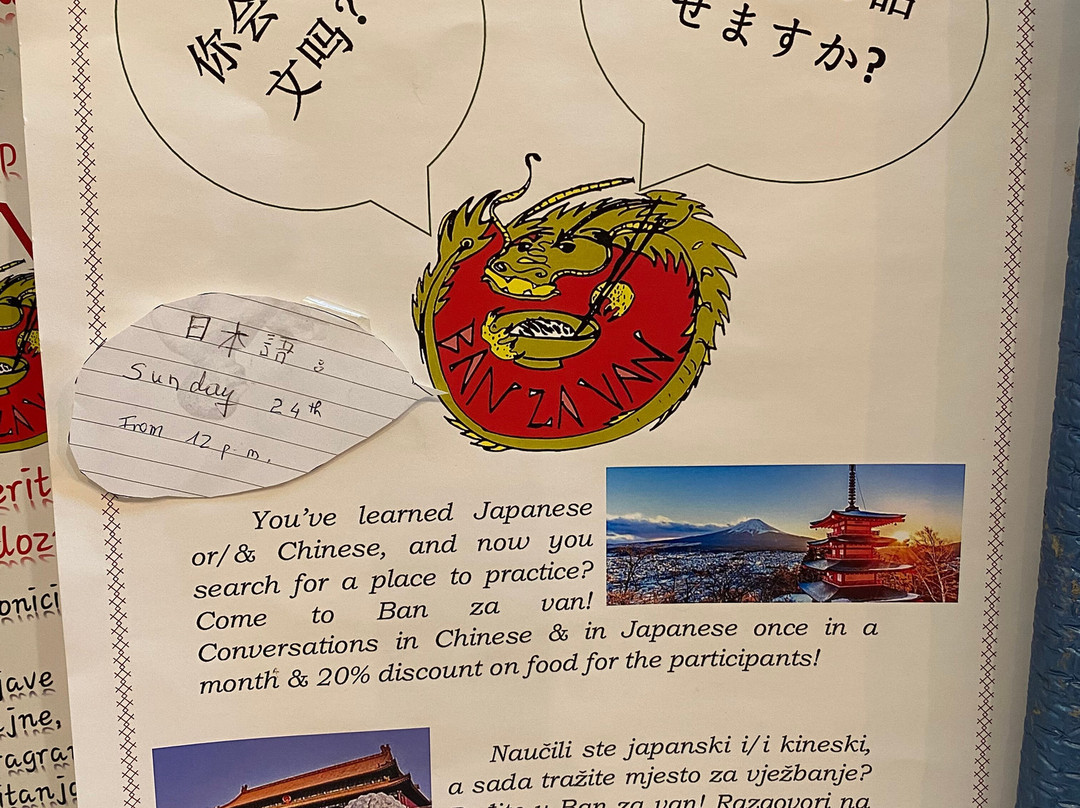 你会
文吗?
話
せますか?
BAN ZA VAN
日本語:
Sunday 24th
From 12 p.m.
You've learned Japanese
or/& Chinese, and now you
search for a place to practice?
Come to Ban za van!
Conversations in Chinese & in Japanese once in a
month & 20% discount on food for the participants!
Naučili ste japanski i/i kineski,
a sada tražite mjesto za vježbanje?
Ban za van! Razgovori na